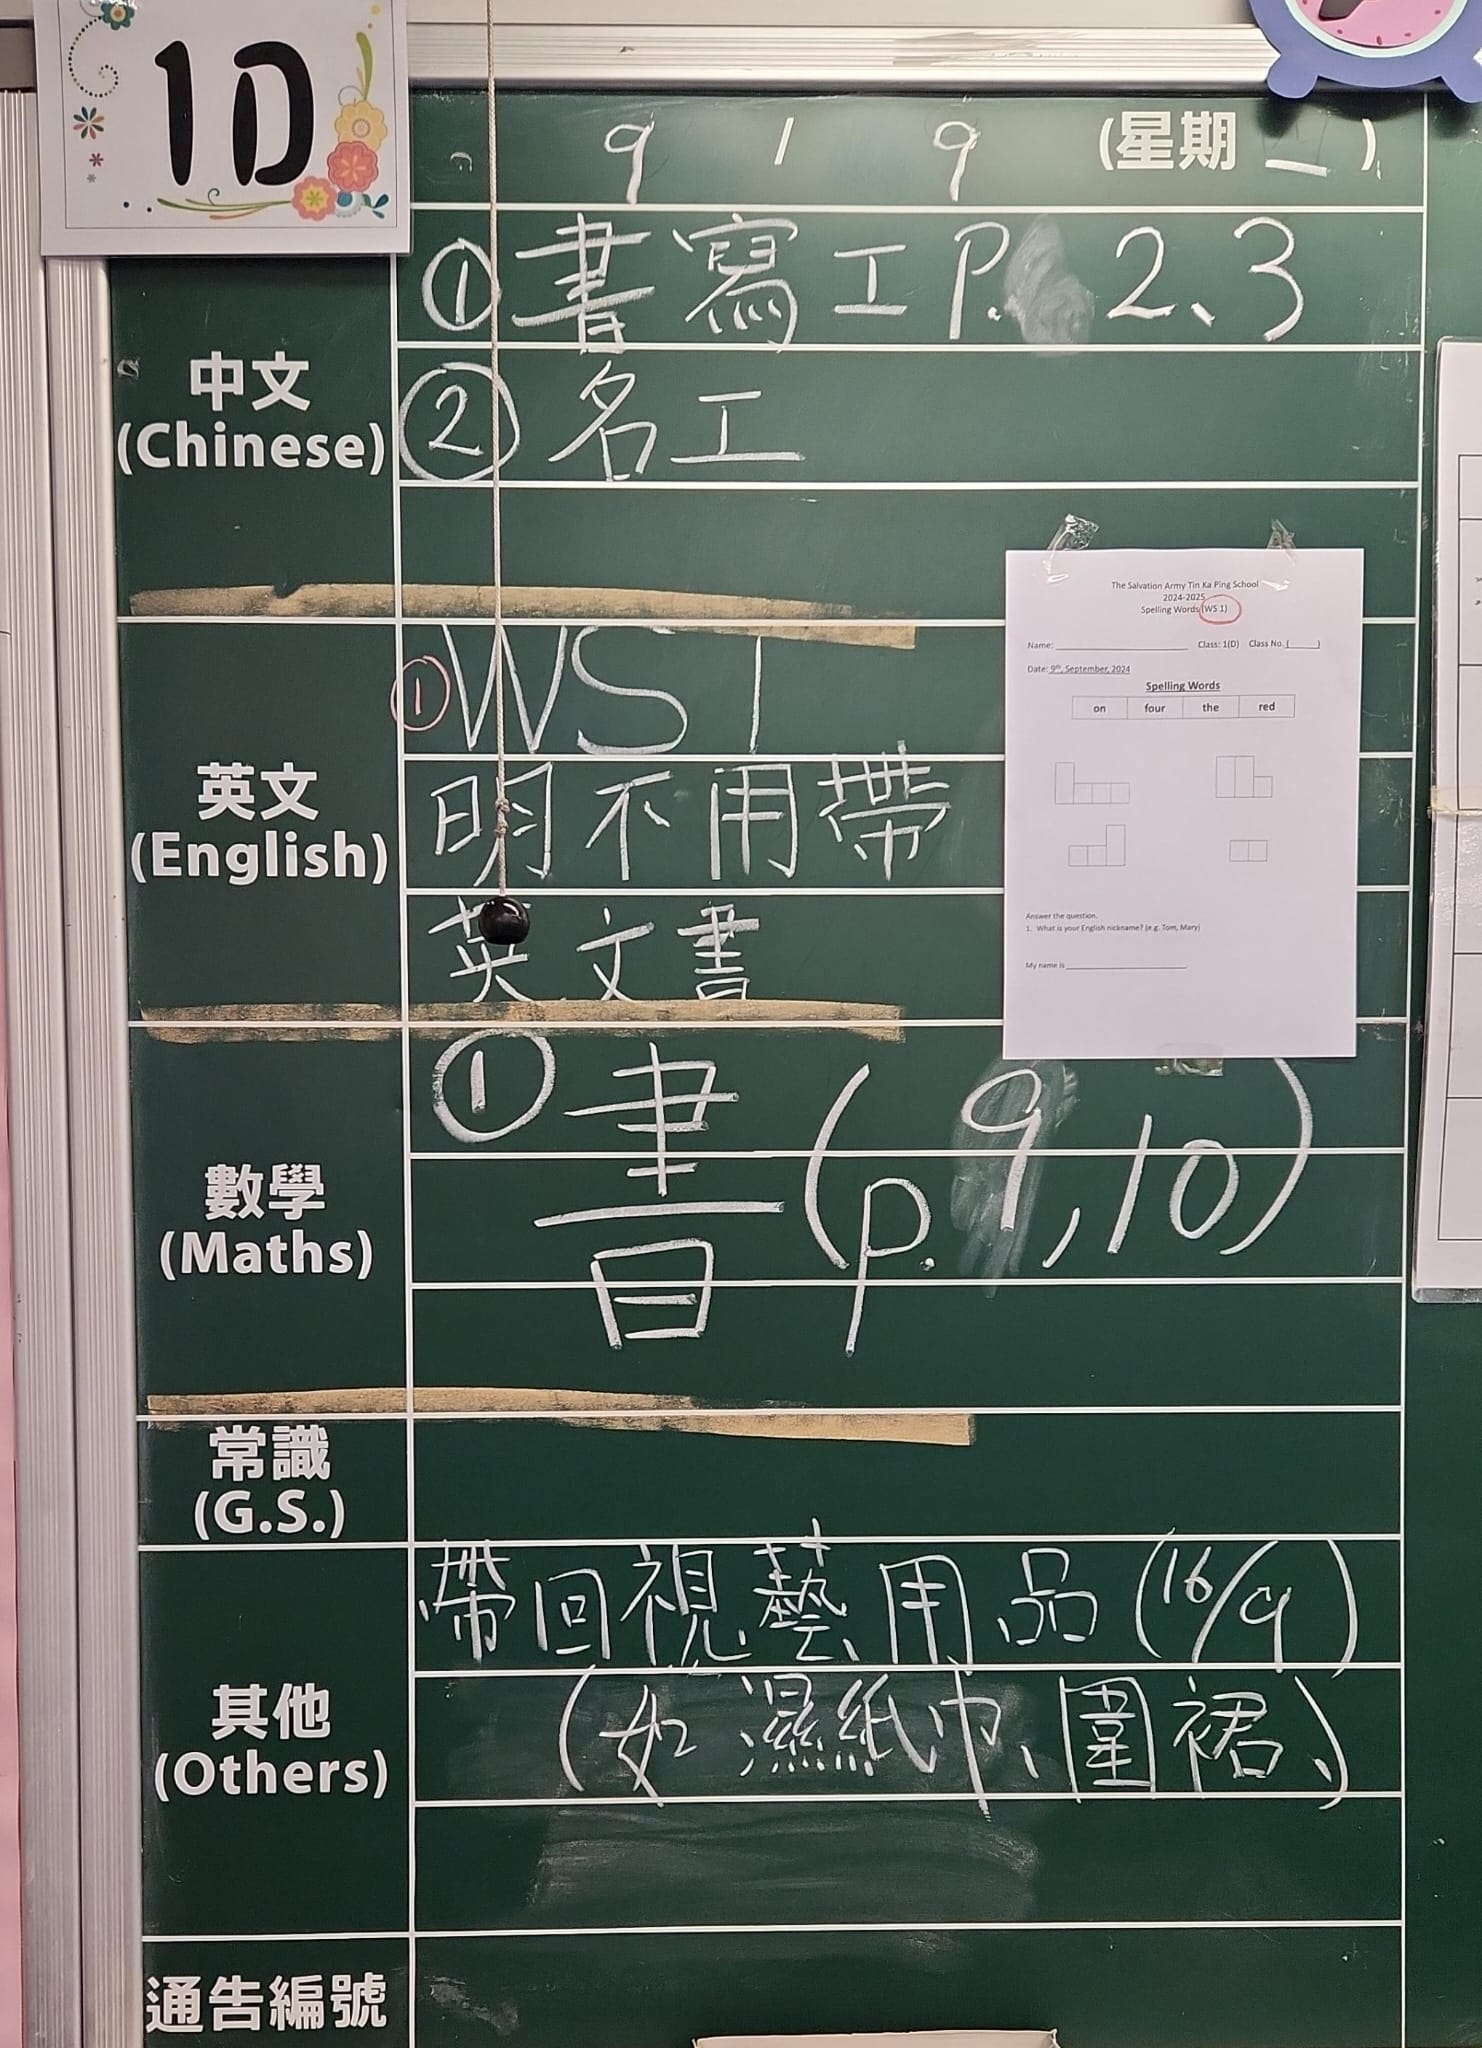 1D
9 / 9 (星期一)
中文
(Chinese)
① 書寫工 P. 2、3
② 名工
英文
(English)
① WS 1
明不用帶
英文書
The Salvation Army Tin Ka Ping School
2024-2025
Spelling Words (WS 1)
Name: Class: 1(D) Class No. ( )
Date: 9th, September, 2024
Spelling Words
on four the red
Answer the question.
1. What is your English nickname? (e.g. Tom, Mary)
My name is
數學
(Maths)
① 書 (p. 9, 10)
常識
(G.S.)
其他
(Others)
帶回視藝用品 (16/9)
(如濕紙巾、圍裙、)
通告編號